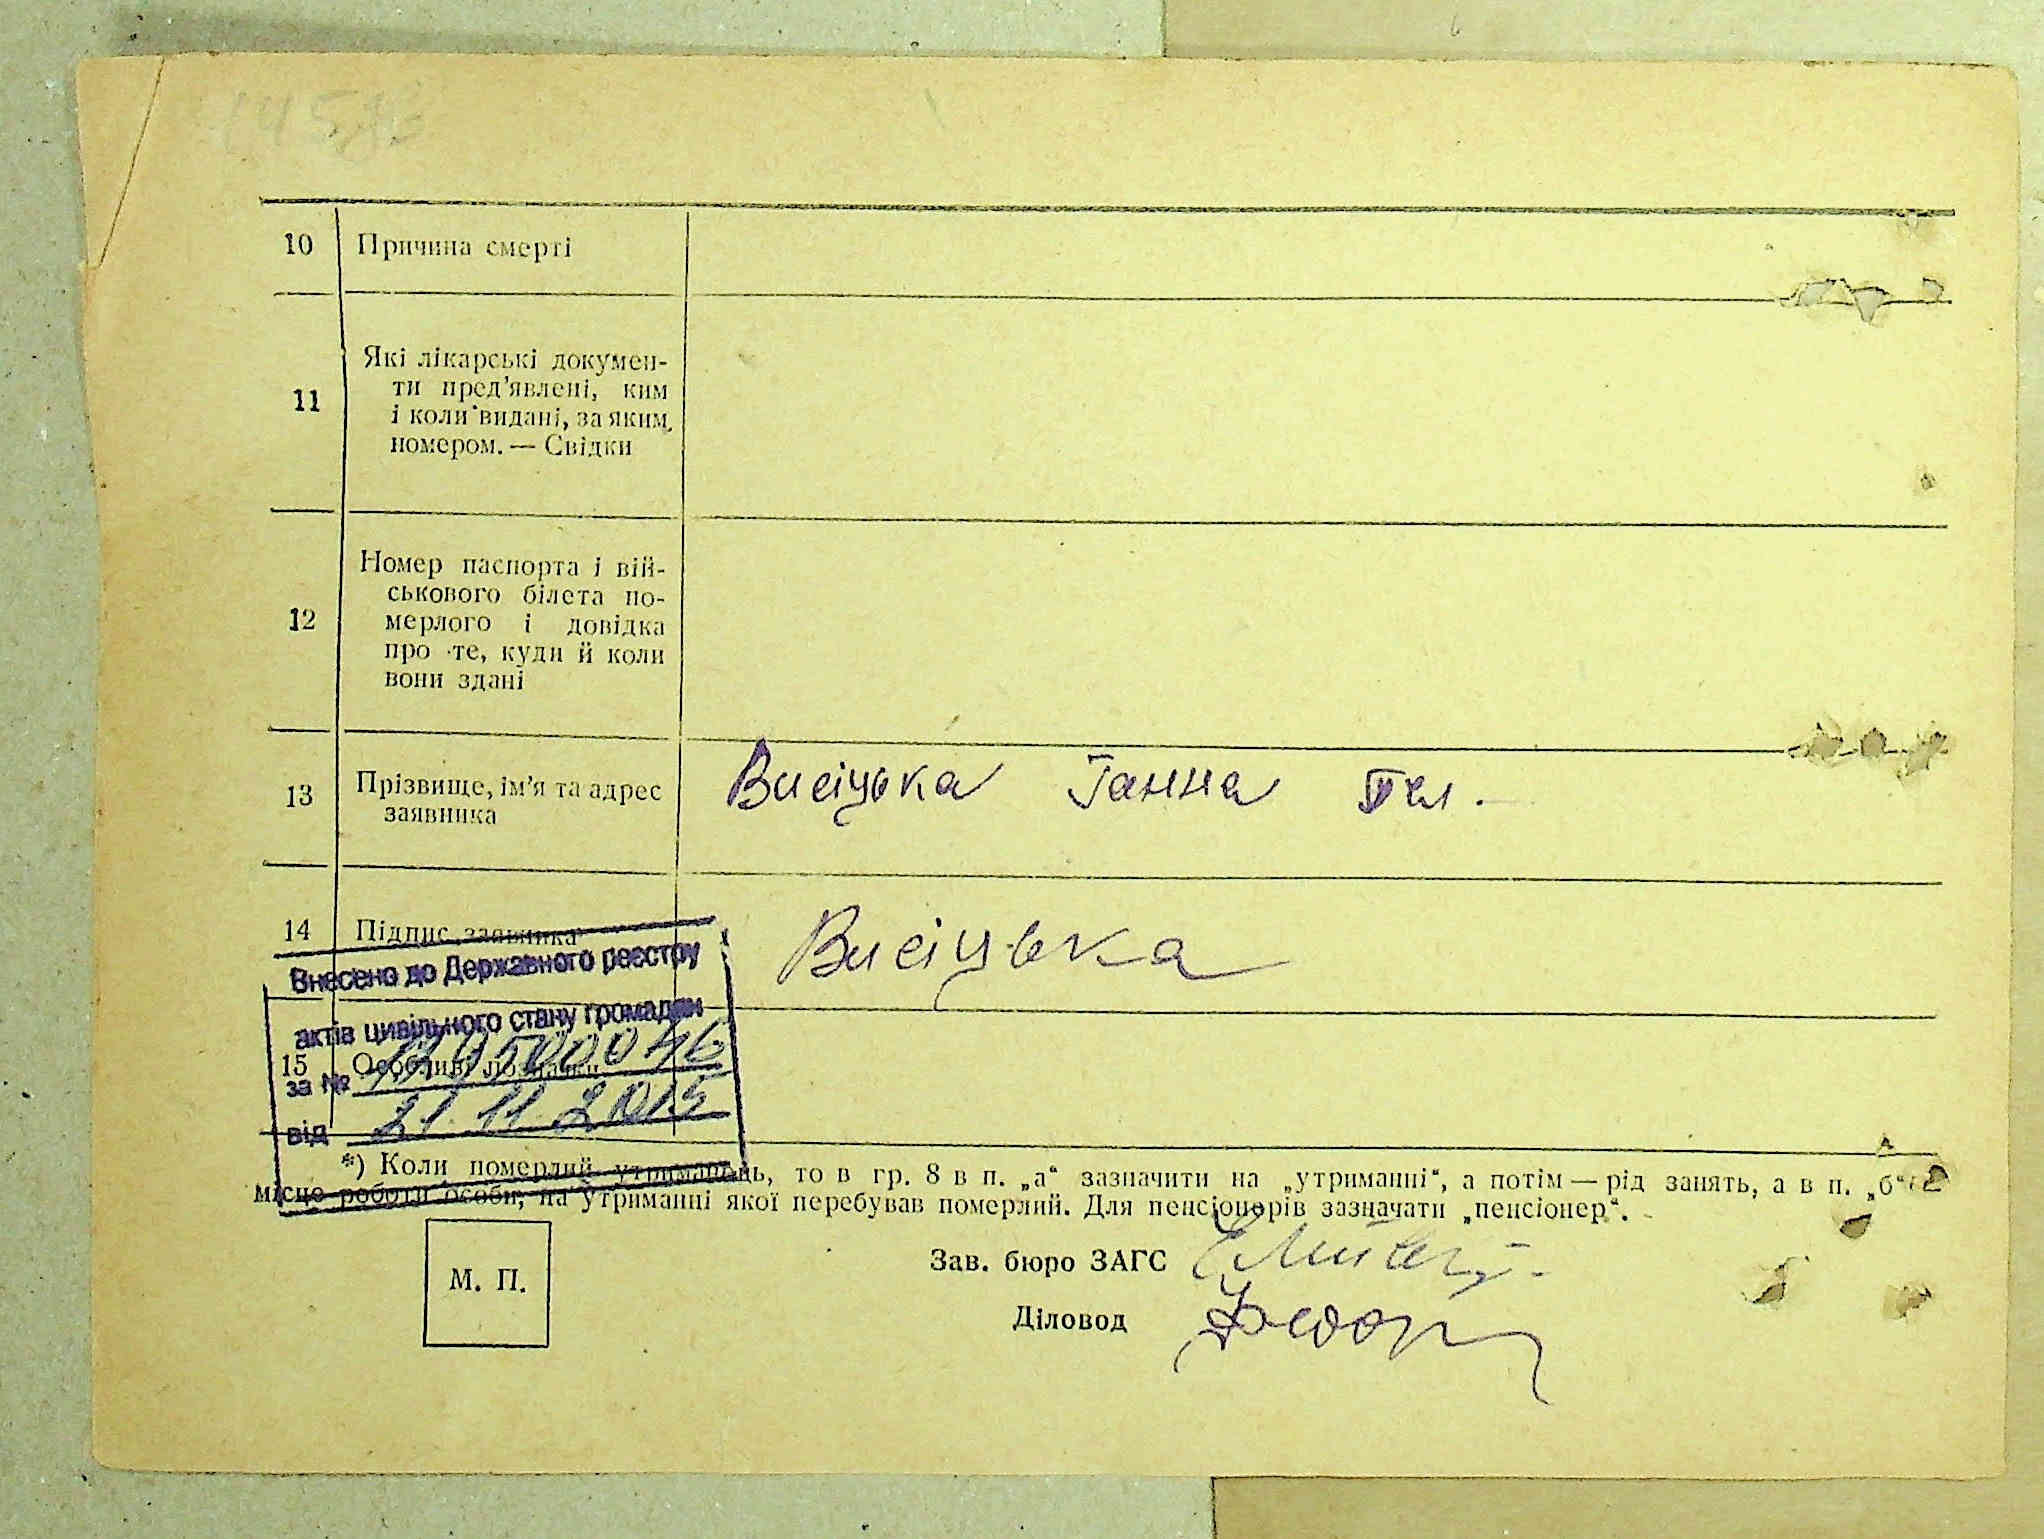 10 Причина смерті
11 Які лікарські докумен-
ти пред’явлені, ким
і коли видані, за яким
номером. — Свідки
12 Номер паспорта і вій-
ськового білета по-
мерлого і довідка
про те, куди й коли
вони здані
13 Прізвище, ім’я та адрес
заявника
Висіцька Ганна
14 Підпис заявника
Висіцька
Внесено до Державного реєстру
актів цивільного стану громадян
15 Особливі позначки
за №
від 21.11.2015
*) Коли померлий утриманець, то в гр. 8 в п. „а“ зазначити на „утриманні“, а потім — рід занять, а в п. „б“
місце роботи особи, на утриманні якої перебував померлий. Для пенсіонерів зазначати „пенсіонер“.
М. П.
Зав. бюро ЗАГС
Діловод